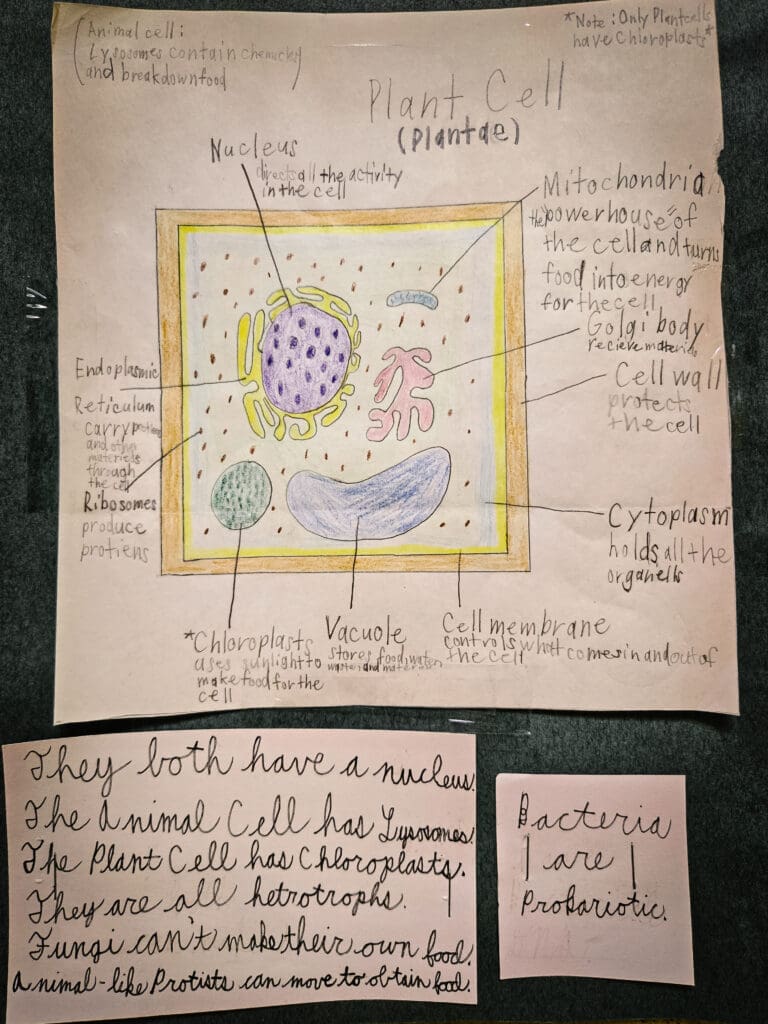 (Animal cell:
Lysosomes contain chemicles
and breakdown food)
*Note: Only Plant cells
have Chloroplasts*
Plant Cell
(Plantae)
Nucleus
directs all the activity
in the cell
Mitochondria
the "powerhouse" of
the cell and turns
food into energy
for the cell
Golgi body
recieve materials
Cell wall
protects
the cell
Endoplasmic
Reticulum
carry protiens
and other
materials
through
the cell
Ribosomes
produce
protiens
Cytoplasm
holds all the
organells
*Chloroplasts
uses sunlight to
make food for the
cell
Vacuole
stores food, water,
waste, and materials
Cell membrane
controls what comes in and out of
the cell
They both have a nucleus.
The Animal Cell has Lysosomes.
The Plant Cell has Chloroplasts.
They are all hetrotrophs.
Fungi can't make their own food.
Animal-like Protists can move to obtain food.
Bacteria
are
Prokariotic.